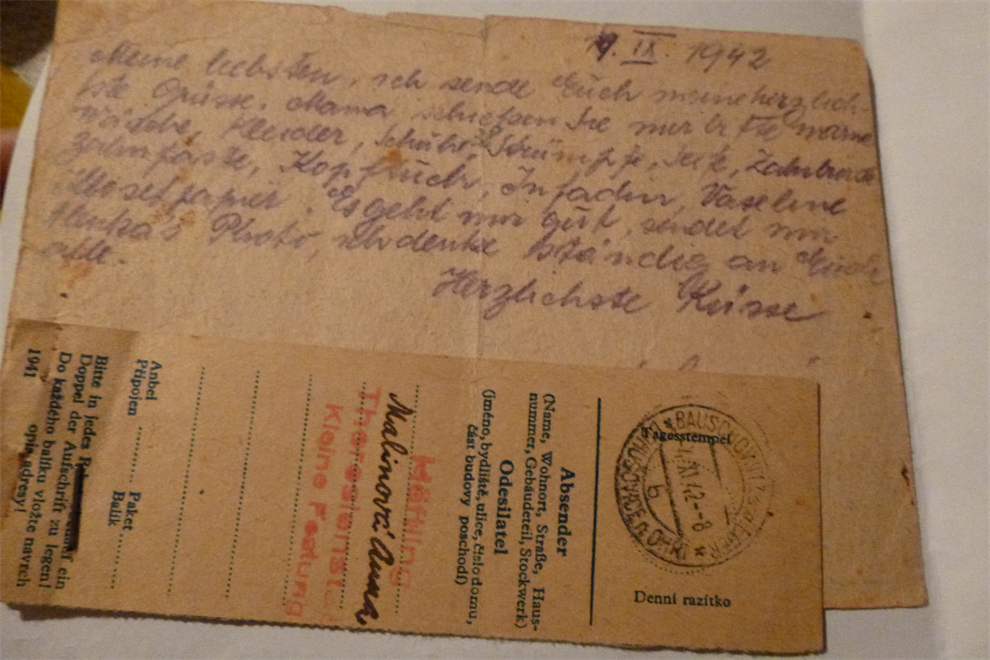 IX. 1942
Meine liebsten, ich sende Euch meine herzlich-
ste Grüsse. Mama schicken Sie mir bitte warme
wäsche, Kleider, Schuhe, Strümpfe, Seife,
Zahnpaste, Kopftuch, Infadin, Vaseline
Es geht mir gut, sendet mir
Photo, ich denke ständig an Euch
alle.
Herzlichste Küsse
Tagesstempel
Denní razítko
Absender
(Name, Wohnort, Straße, Haus-
nummer, Gebäudeteil, Stockwerk)
Odesilatel
(jméno, bydliště, ulice, číslo domu,
část budovy poschodí)
Häftling
Malinová Anna
Theresienstadt
Kleine Festung
Anbei Paket
Připojen Balík
Bitte in jedes ein
Doppel der Aufschrift zu legen!
Do každého balíku vložte navrch
1941 opis adresy!